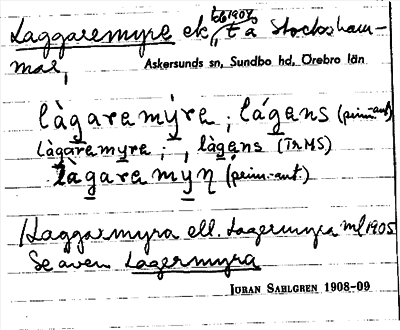 Laggaremyre ek 1907 t a Stocksham-
mar,
Askersunds sn, Sundbo hd, Örebro län
làgaremýre; lágens (prim.-ant.)
làgaremyre; , làgens (TRMS)
làgaremyn (prim.-ant.)
Laggarmyra ell. Lagermyra ml 1905
Se även Lagermyra
JÖRAN SAHLGREN 1908-09